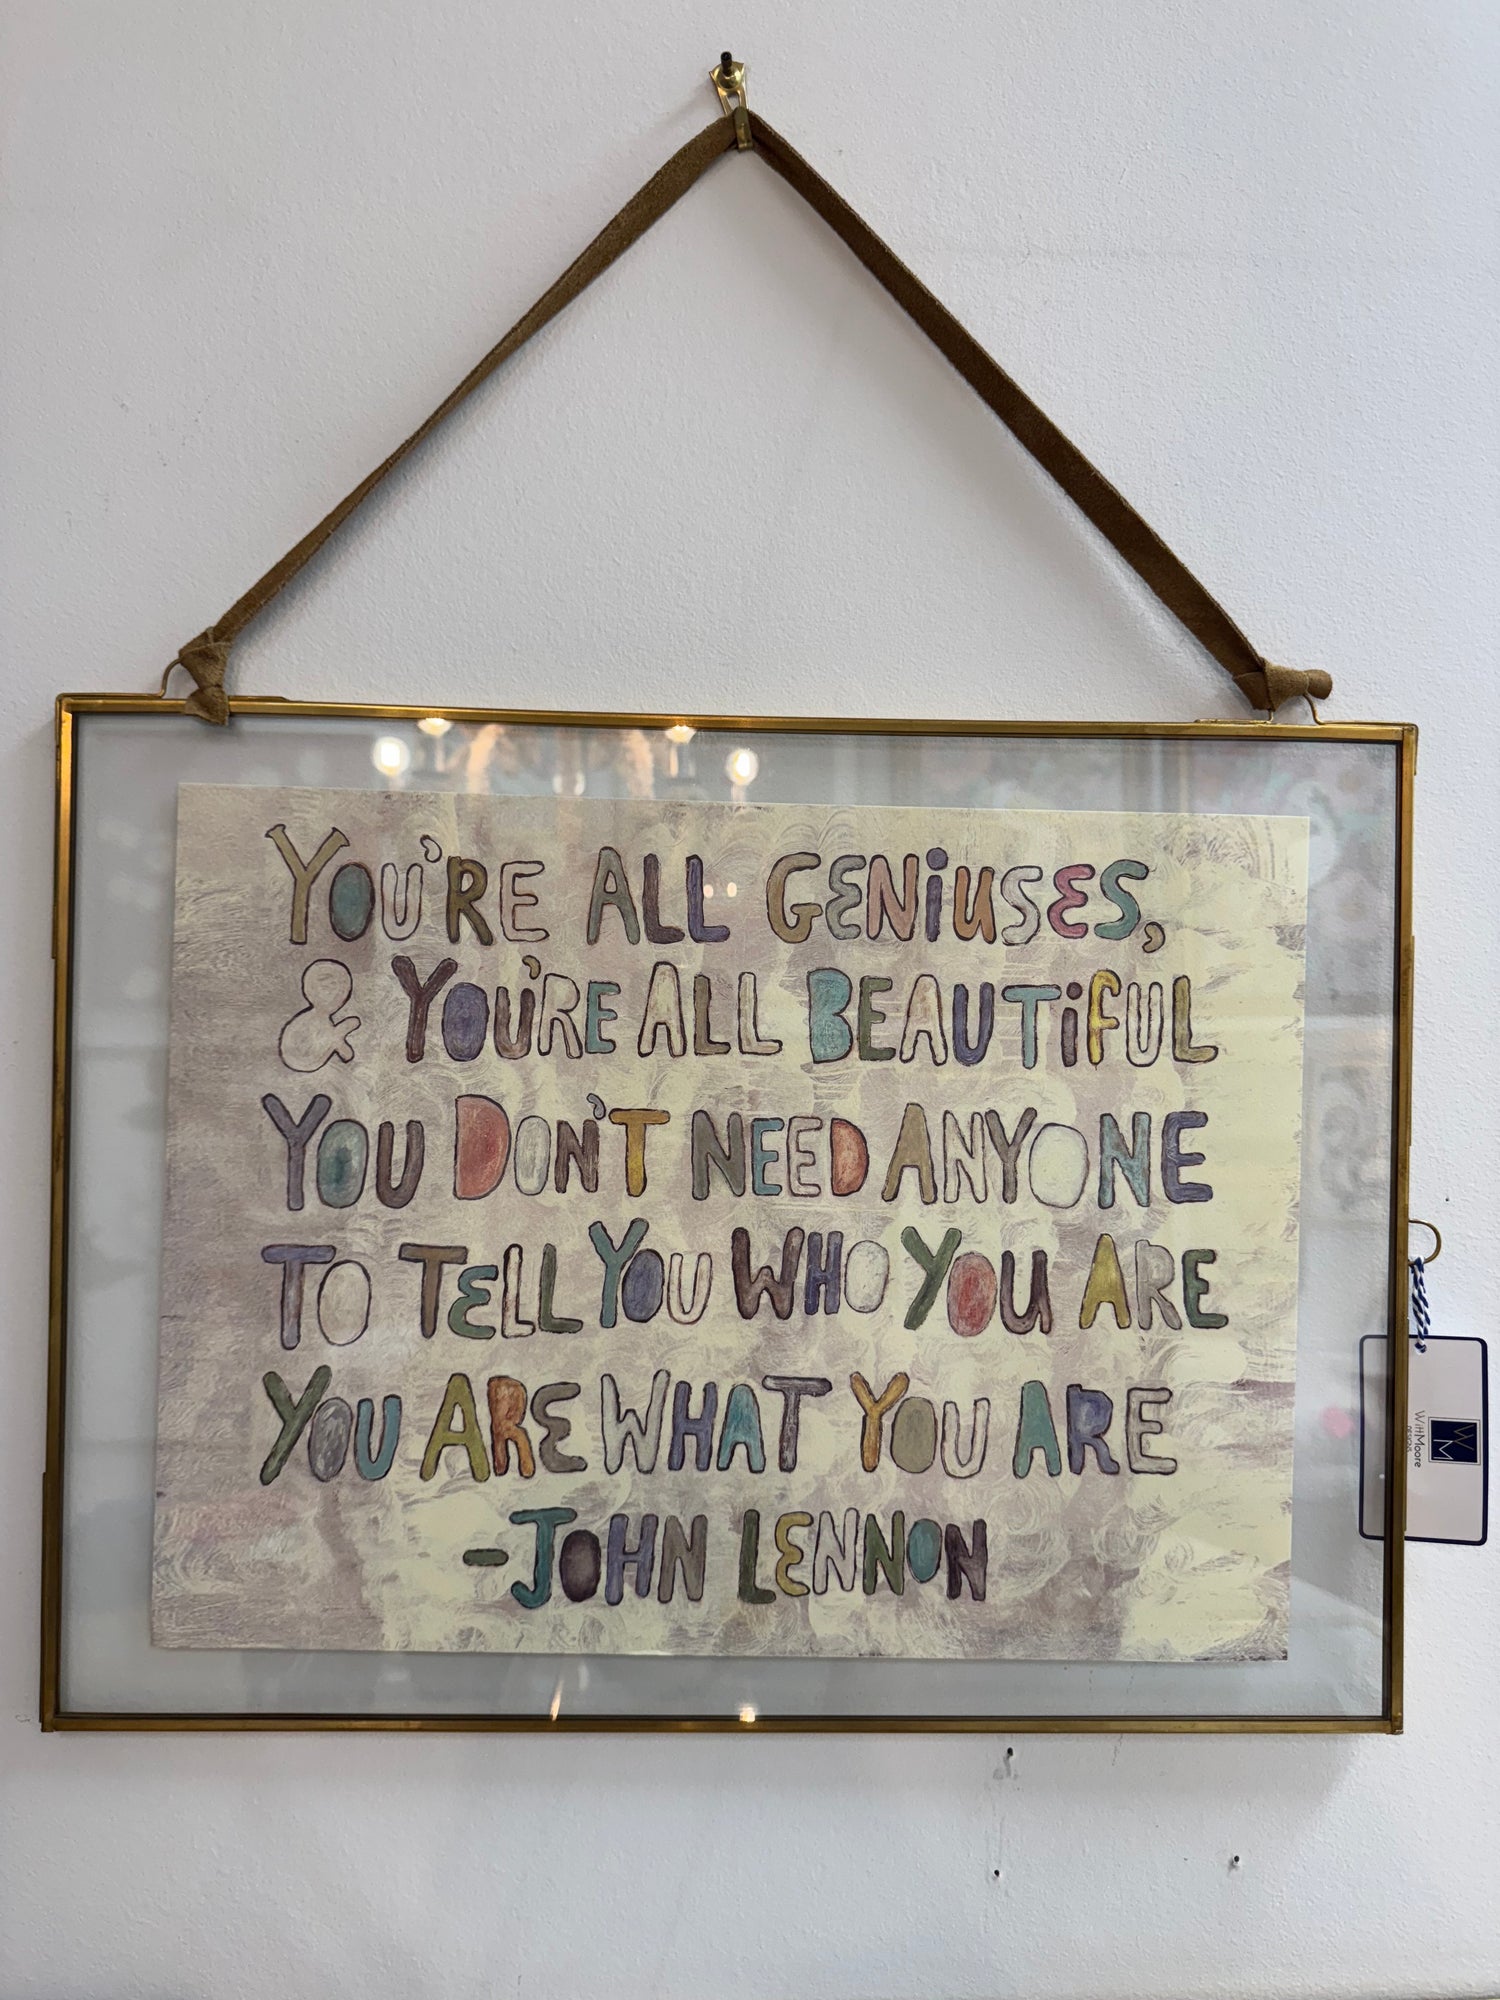 YOU'RE ALL GENiUSES,
& YOU'RE ALL BEAUTiFUL
YOU DON'T NEED ANYONE
TO TELL YOU WHO YOU ARE
YOU ARE WHAT YOU ARE
-JOHN LENNON
WM
WittMoore